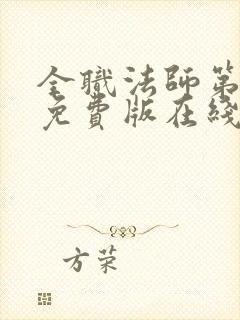 全職法師第
免費版在綫
方荣